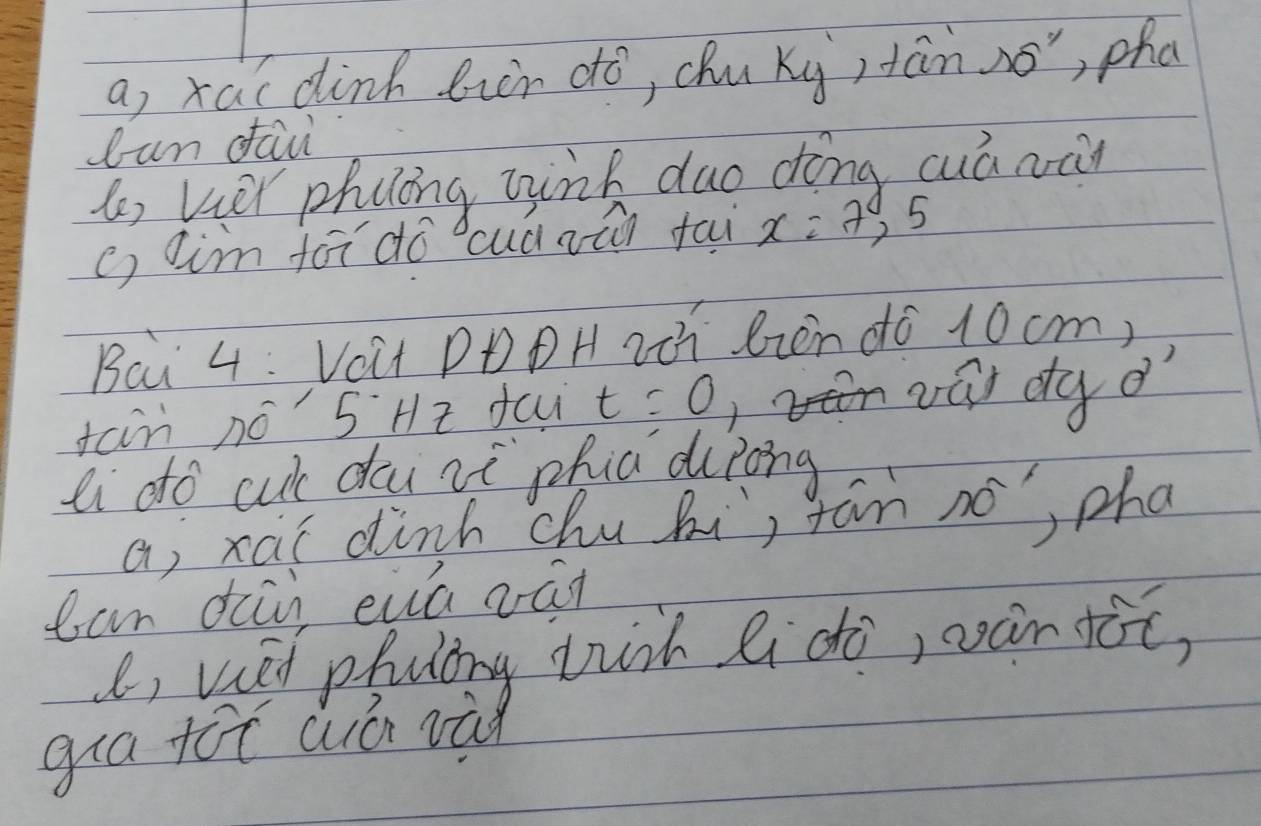 a, xác định biên độ, chu kỳ, tần số, pha
ban đầu
b, viết phương trình dao động của vật
c, tìm tốc độ của vật tại x = 7,5
Bài 4: Vật DĐĐH với biên độ 10 cm,
tần số 5 Hz tại t = 0, vật đg ở
li độ cực đại về phía dương
a, xác định chu kì, tần số, pha
ban đầu của vật
b, viết phương trình li độ, vận tốc,
gia tốc của vật